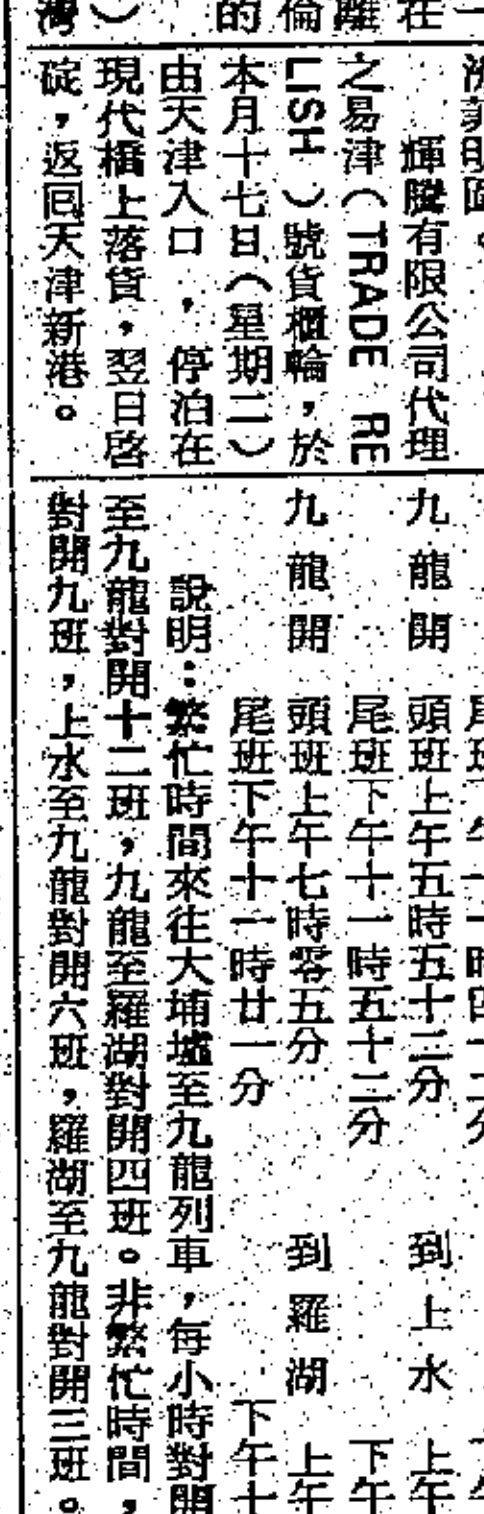 在
離
倫
的
）
灣
輝騰有限公司代理
之易津（TRADE RE
LISH）號貨櫃輪，於
本月十七日（星期二）
由天津入口，停泊在
現代橋上落貨，翌日啓
碇，返回天津新港。
九龍開 頭班上午五時五十二分 到上水 上午
尾班下午十一時五十二分 下午
九龍開 頭班上午七時零五分 到羅湖 上午
尾班下午十一時廿一分 下午十
說明：繁忙時間來往大埔墟至九龍列車，每小時對開
至九龍對開十二班，九龍至羅湖對開四班。非繁忙時間，
對開九班，上水至九龍對開六班，羅湖至九龍對開三班。